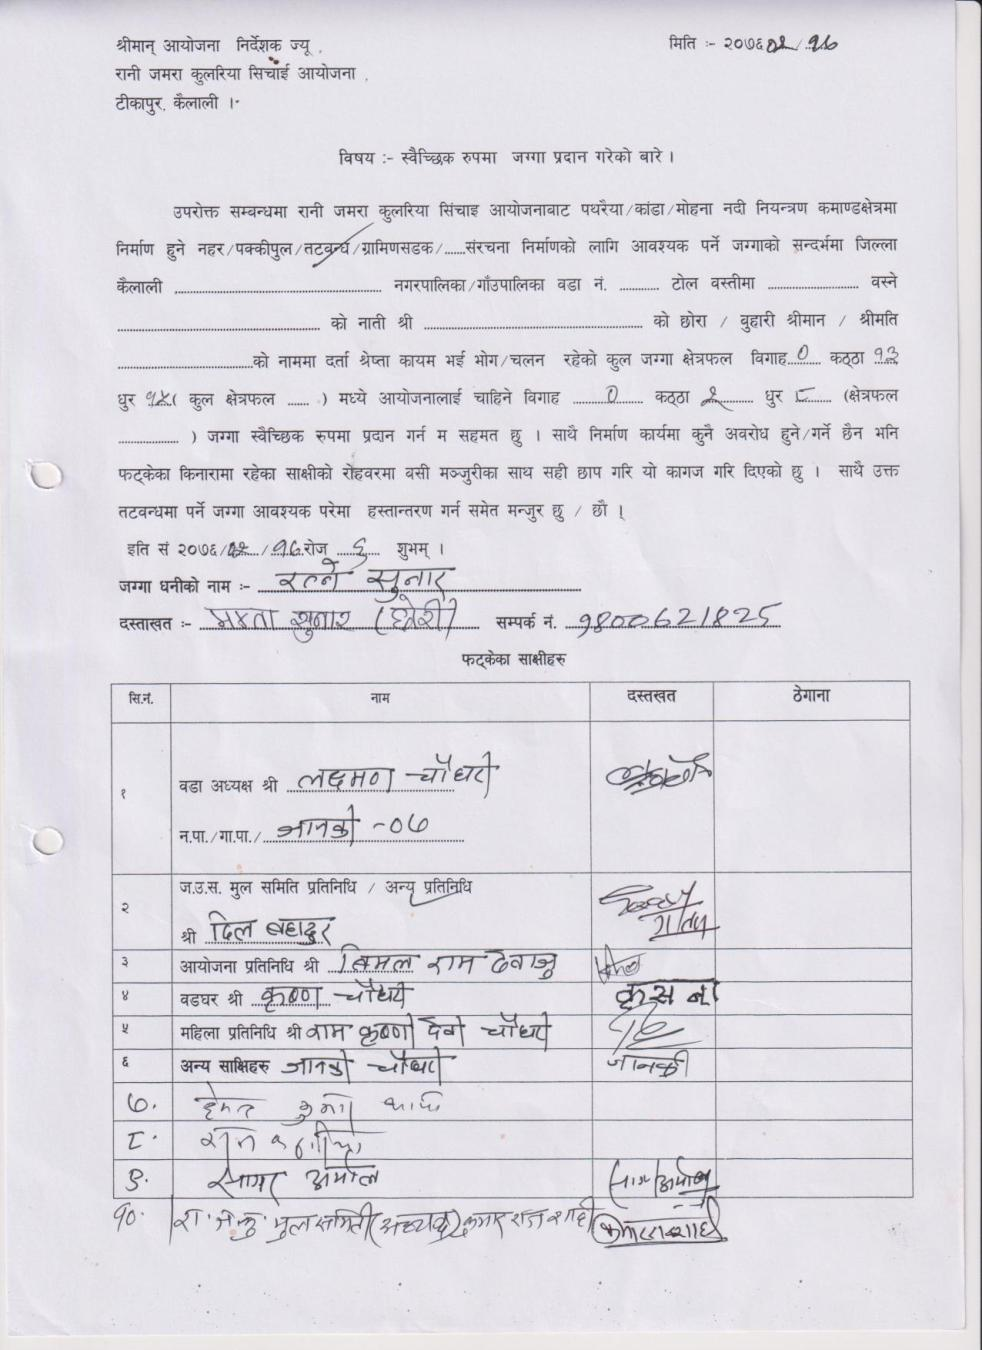 श्रीमान् आयोजना निर्देशक ज्यू , मिति :- २०७६/०२/१७
रानी जमरा कुलरिया सिंचाई आयोजना ,
टीकापुर, कैलाली ।
विषय :- स्वैच्छिक रुपमा जग्गा प्रदान गरेको बारे ।
उपरोक्त सम्बन्धमा रानी जमरा कुलरिया सिंचाइ आयोजनाबाट पथरैया/कांडा/मोहना नदी नियन्त्रण कमाण्डक्षेत्रमा
निर्माण हुने नहर/पक्कीपुल/तटबन्ध/ग्रामिणसडक/......संरचना निर्माणको लागि आवश्यक पर्ने जग्गाको सन्दर्भमा जिल्ला
कैलाली .......... नगरपालिका/गाँउपालिका वडा नं. .......... टोल वस्तीमा .......... वस्ने
.......... को नाती श्री .......... को छोरा / बुहारी श्रीमान / श्रीमति
..........को नाममा दर्ता श्रेष्ता कायम भई भोग/चलन रहेको कुल जग्गा क्षेत्रफल विगाह ० कठ्ठा १३
धुर १५( कुल क्षेत्रफल ...... ) मध्ये आयोजनालाई चाहिने विगाह ० कठ्ठा २ धुर ८ (क्षेत्रफल
.......... ) जग्गा स्वैच्छिक रुपमा प्रदान गर्न म सहमत छु । साथै निर्माण कार्यमा कुनै अवरोध हुने/गर्ने छैन भनि
फट्केका किनारामा रहेका साक्षीको रोहवरमा बसी मञ्जुरीका साथ सही छाप गरि यो कागज गरि दिएको छु । साथै उक्त
तटवन्धमा पर्ने जग्गा आवश्यक परेमा हस्तान्तरण गर्न समेत मन्जुर छु / छौ ।
इति सं २०७६/०२/१७ रोज ६ शुभम् ।
जग्गा धनीको नाम :- रत्ने सुनार
दस्ताखत :- सुनार (छोरी) सम्पर्क नं. 9800621825
फट्केका साक्षीहरु
सि.नं. नाम दस्तखत ठेगाना
१ वडा अध्यक्ष श्री लक्ष्मण चौधरी
न.पा./गा.पा./ जानकी -०७
२ ज.उ.स. मुल समिति प्रतिनिधि / अन्य प्रतिनिधि
श्री दिल बहादुर
३ आयोजना प्रतिनिधि श्री बिमल राम देवाजु बिमल
४ वडघर श्री कृष्ण चौधरी कृसना
५ महिला प्रतिनिधि श्री राम कृष्णी देवी चौधरी
६ अन्य साक्षिहरु जानकी चौधरी जानकी
७.
८.
९. सागर अर्माल
१०. मुल समिति (अध्यक्ष) कुमार राज शाही